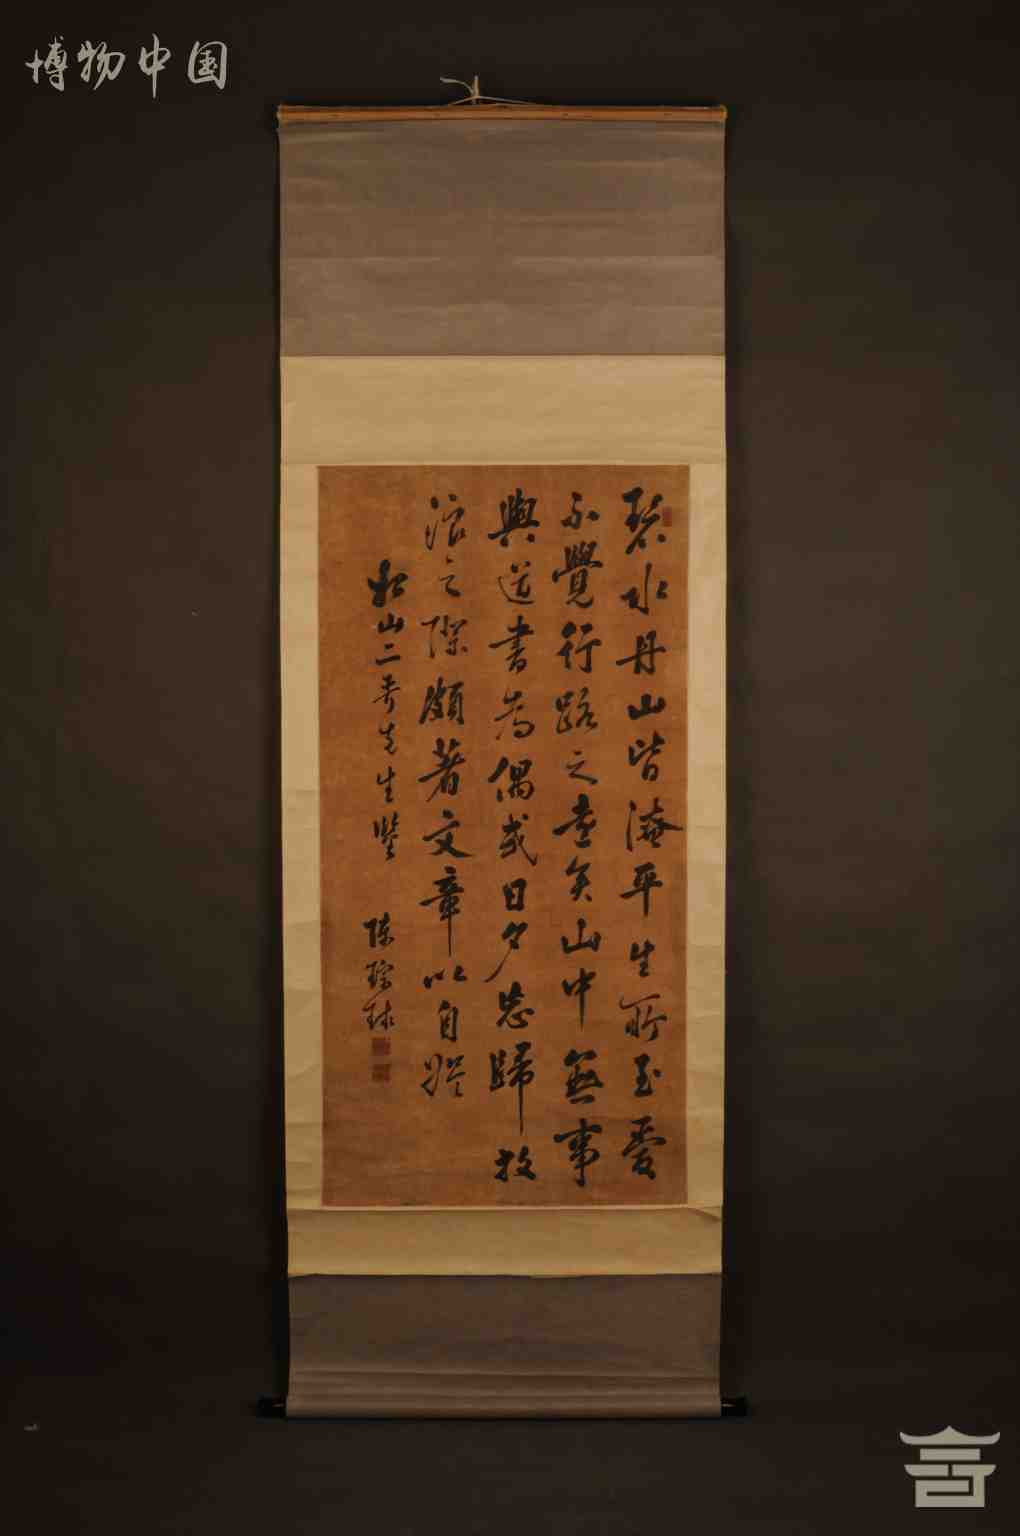 博物中国
碧水丹山皆淹平生所至爱
不覺行路之遠矣山中無事
與道書為偶或日夕忘歸放
浪之際頗著文章以自娱
松山二弟先生鑒
陈琮球